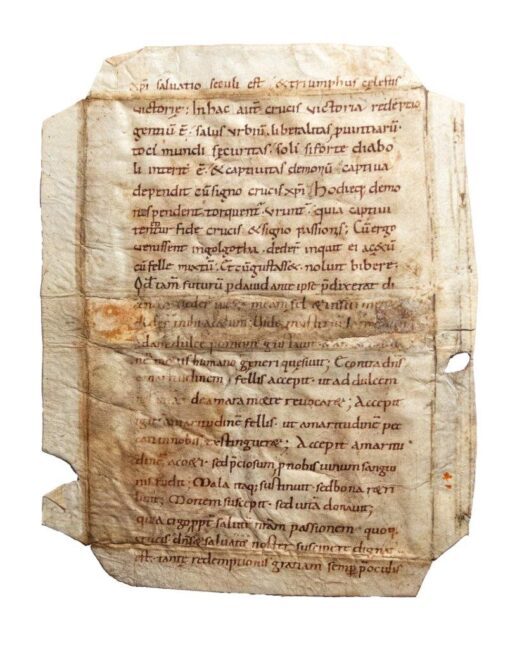 xpi salvatio seculi est & triumphus celestis
victorię; In hac aut crucis victoria redeptio
gentiū ē. salus urbiū. libertalitas puintiarū.
toci mundi securitas. soli siforte diabo
li interit' ē. & captivitas demonū captiva
dependit cū signo crucis xpi; Hodieq; demo
nes pendent. torquent'. urunt'. quia captivi
tenent' fide crucis & signo passionis; Cū ergo
venissent in golgotha. deder inquit ei acetū
cū felle mixtū; Et cū gustass&. noluit bibere;
Qd tam futurū p dauid ante ipse pdixerat di
cens deder meam fel & in siti mea
aceum;
adam dulce pomum gustavit &
nē mortis humano generi quesivit; Econtra dns
amaritudinem fellis accepit. ut ad dulcem
de amara morte revocar&; Accepit
igit amaritudinē fellis. ut amaritudinē pec
cati in nobis extinguer&; Accepit amaritu
dinē ac&i. sed pciosum p nobis vinum sangui
nis fudit; Mala itaq; sustinuit. sed bona reddi
dit; Mortem suscepit. sed vitā donavit;
quia ergo ppt salutē nram passionem quoq;
crucis dns & salvator noster suscipere dignat'
est. tante redemptionis gratiam semp p oculis